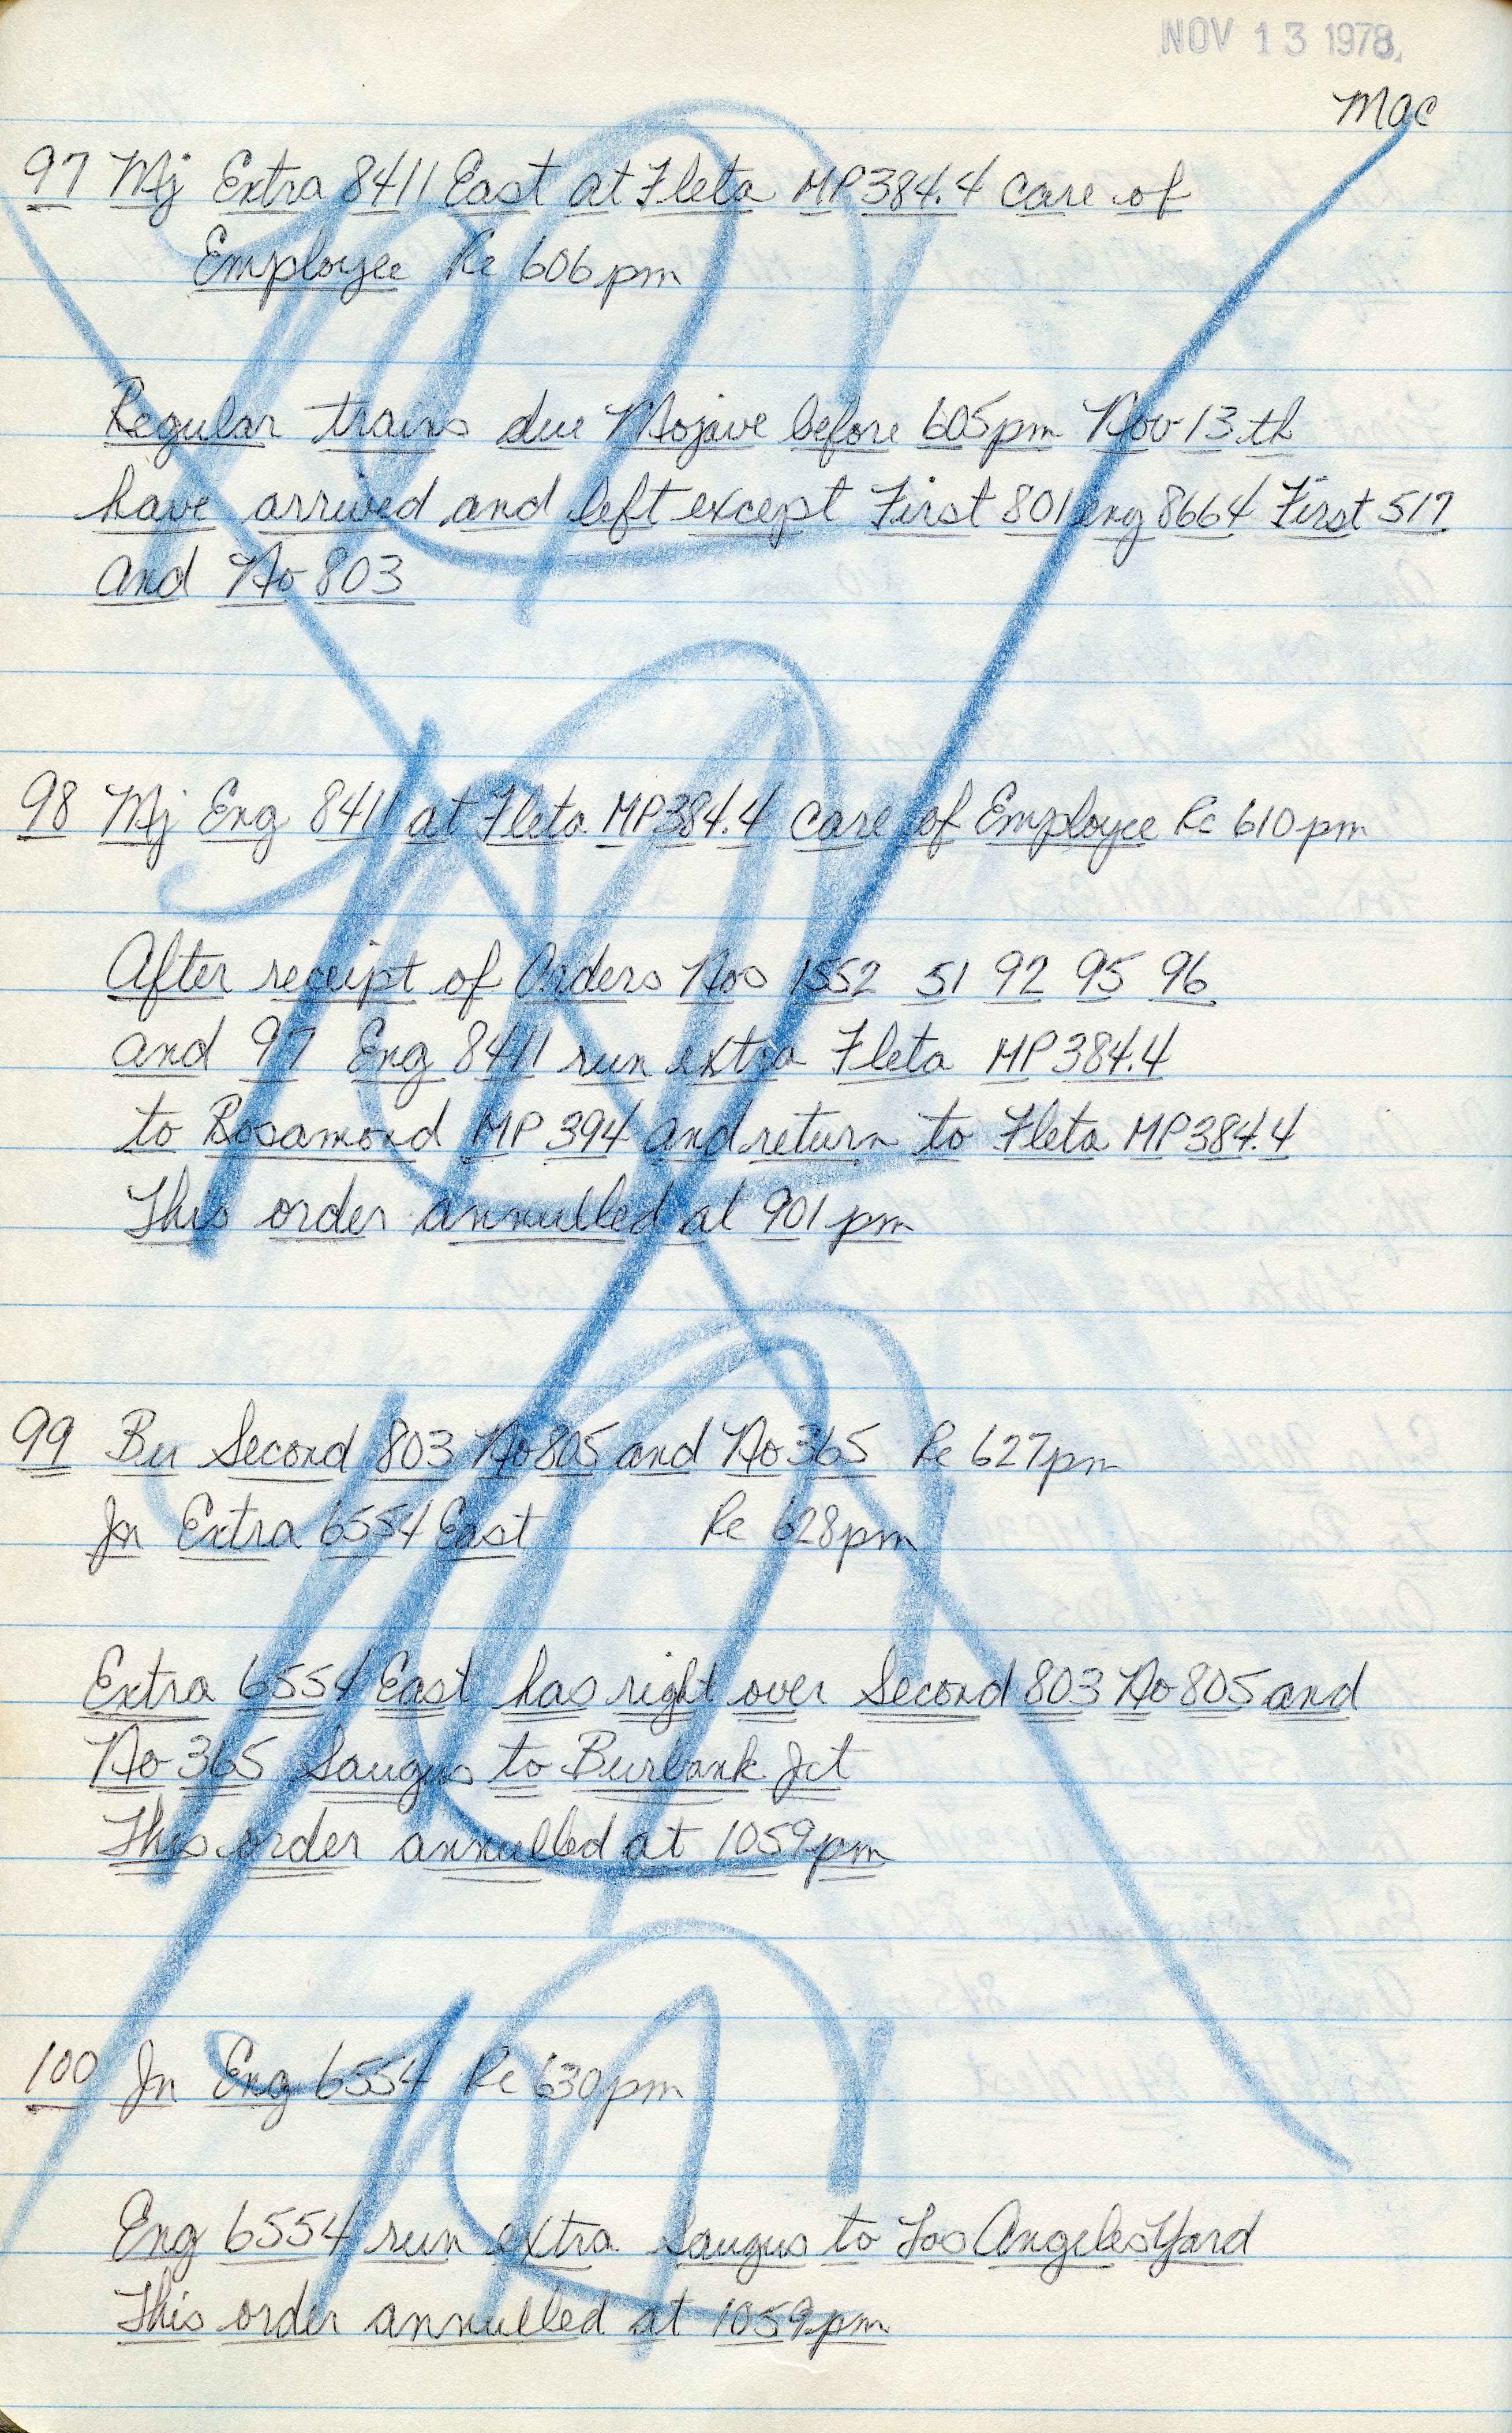 NOV 13 1978
Mac
97 Mj Extra 8411 East at Fleta MP384.4 care of
Employee Rc 606pm
Regular trains due Mojave before 605pm Nov 13th
have arrived and left except First 801 eng 8664 First 517
and No 803
98 Mj Eng 8411 at Fleta MP384.4 care of Employee Rc 610pm
After receipt of Orders Nos 1552 51 92 95 96
and 97 Eng 8411 run extra Fleta MP384.4
to Rosamond MP 394 and return to Fleta MP384.4
This order annulled at 901pm
99 Bu Second 803 No805 and No365 Rc 627pm
Jn Extra 6554 East Rc 628pm
Extra 6554 East has right over Second 803 No 805 and
No 365 Saugus to Burbank Jct
This order annulled at 1059pm
100 Jn Eng 6554 Rc 630pm
Eng 6554 run extra Saugus to Los Angeles Yard
This order annulled at 1059pm